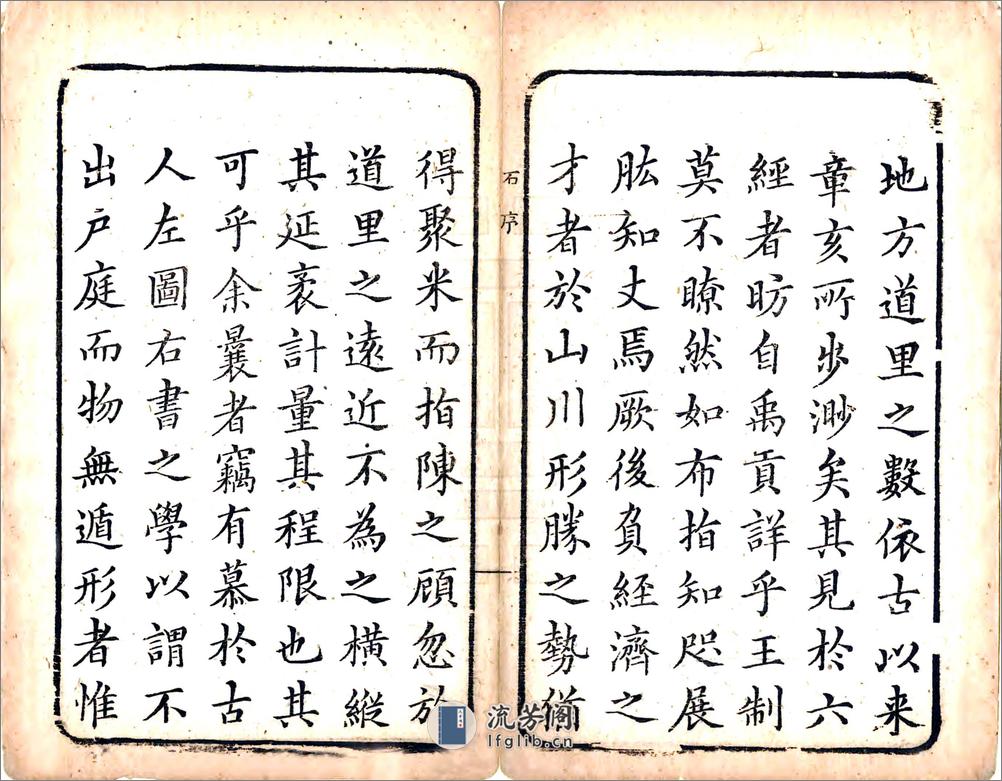 地方道里之數依古以来
章亥所步渺矣其見於六
經者昉自禹貢詳乎王制
莫不瞭然如布指知咫展
肱知丈焉厥後負経濟之
才者於山川形勝之勢偹
石序
得聚米而指陳之顧忽於
道里之遠近不為之横縱
其延袤計量其程限也其
可乎余曩者竊有慕於古
人左圖右書之學以謂不
出户庭而物無遁形者惟
流芳阁
lfglib.cn